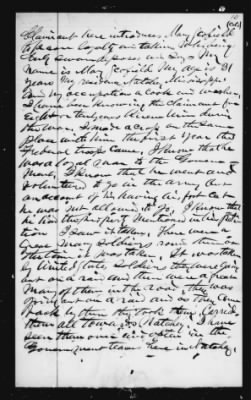 Claimant here introduces May Cofield
to prove loyalty and taking who being
duly sworn deposes and says my
name is May Cofield My age is 31
years My residence Natchez Mississippi
and my occupation a cook and washer
I have been knowing the claimant for
Eight or ten years I knew him during
the war I made a crop on the same
place with him the first year the
Federal troops came. I know that he
was a loyal man to the Government
ment, I know that he went and
volunteered to go in the army but
on account of his having his foot cut
he was not detained I know that
he had the property mentioned in his petition
tion I saw it taken, There were a
great many soldiers come there on
the time it was taken. It was taken
by United States soldiers they were going
out on a raid and there were a great
many of them in the road they was
going out on a raid and as they come
back by there they took them Carried
them all towards Natchez I have
seen them once and after in the
Government team here in Natchez.